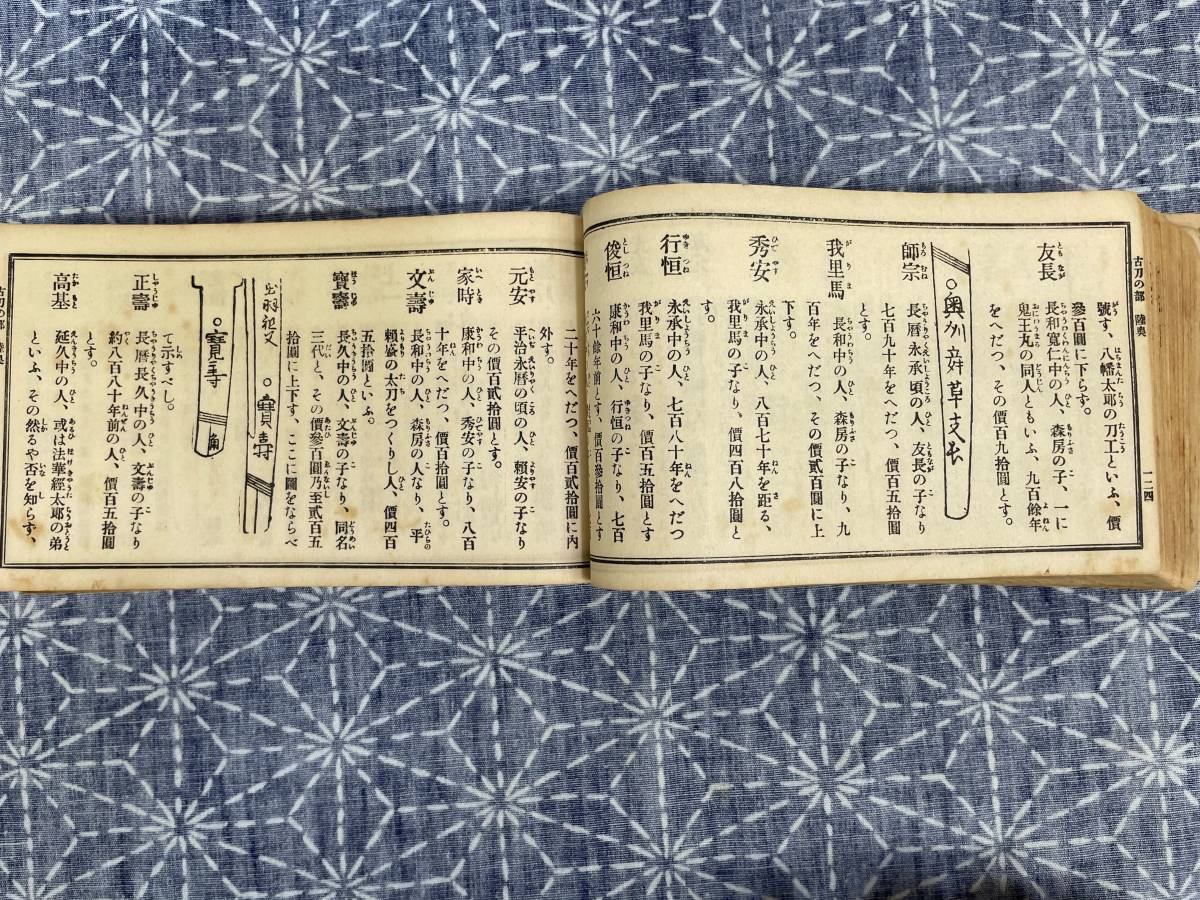 古刀の部 陸奥
一二四
號す、八幡太郎の刀工といふ、價
參百圓に下らず。
友長
長和寛仁中の人、森房の子、一に
鬼王丸の同人ともいふ、九百餘年
をへだつ、その價百九拾圓とす。
師宗
長暦永承頃の人、友長の子なり
七百九十年をへだつ、價百五拾圓
とす。
我里馬
長和中の人、森房の子なり、九
百年をへだつ、その價貳百圓に上
下す。
秀安
永承中の人、八百七十年を距る、
我里馬の子なり、價四百八拾圓と
す。
行恒
永承中の人、七百八十年をへだつ
我里馬の子なり、價百五拾圓とす
俊恒
康和中の人、行恒の子なり、七百
六十餘年前とす、價百參拾圓とす
二十年をへだつ、價百貳拾圓に内
外す。
元安
平治永暦の頃の人、賴安の子なり
その價百貳拾圓とす。
家時
康和中の人、秀安の子なり、八百
十年をへだつ、價百拾圓とす。
文壽
長和中の人、森房の人なり、平
賴盛の太刀をつくりし人、價四百
五拾圓といふ。
寶壽
長久中の人、文壽の子なり、同名
三代と、その價參百圓乃至貳百五
拾圓に上下す、ここに圖をならべ
寶壽
寶寿
て示すべし。
正壽
長暦長久中の人、文壽の子なり
約八百八十年前の人、價百五拾圓
とす。
高基
延久中の人、或は法華經太郎の弟
といふ、その然るや否を知らず、
古刀の部 陸奥